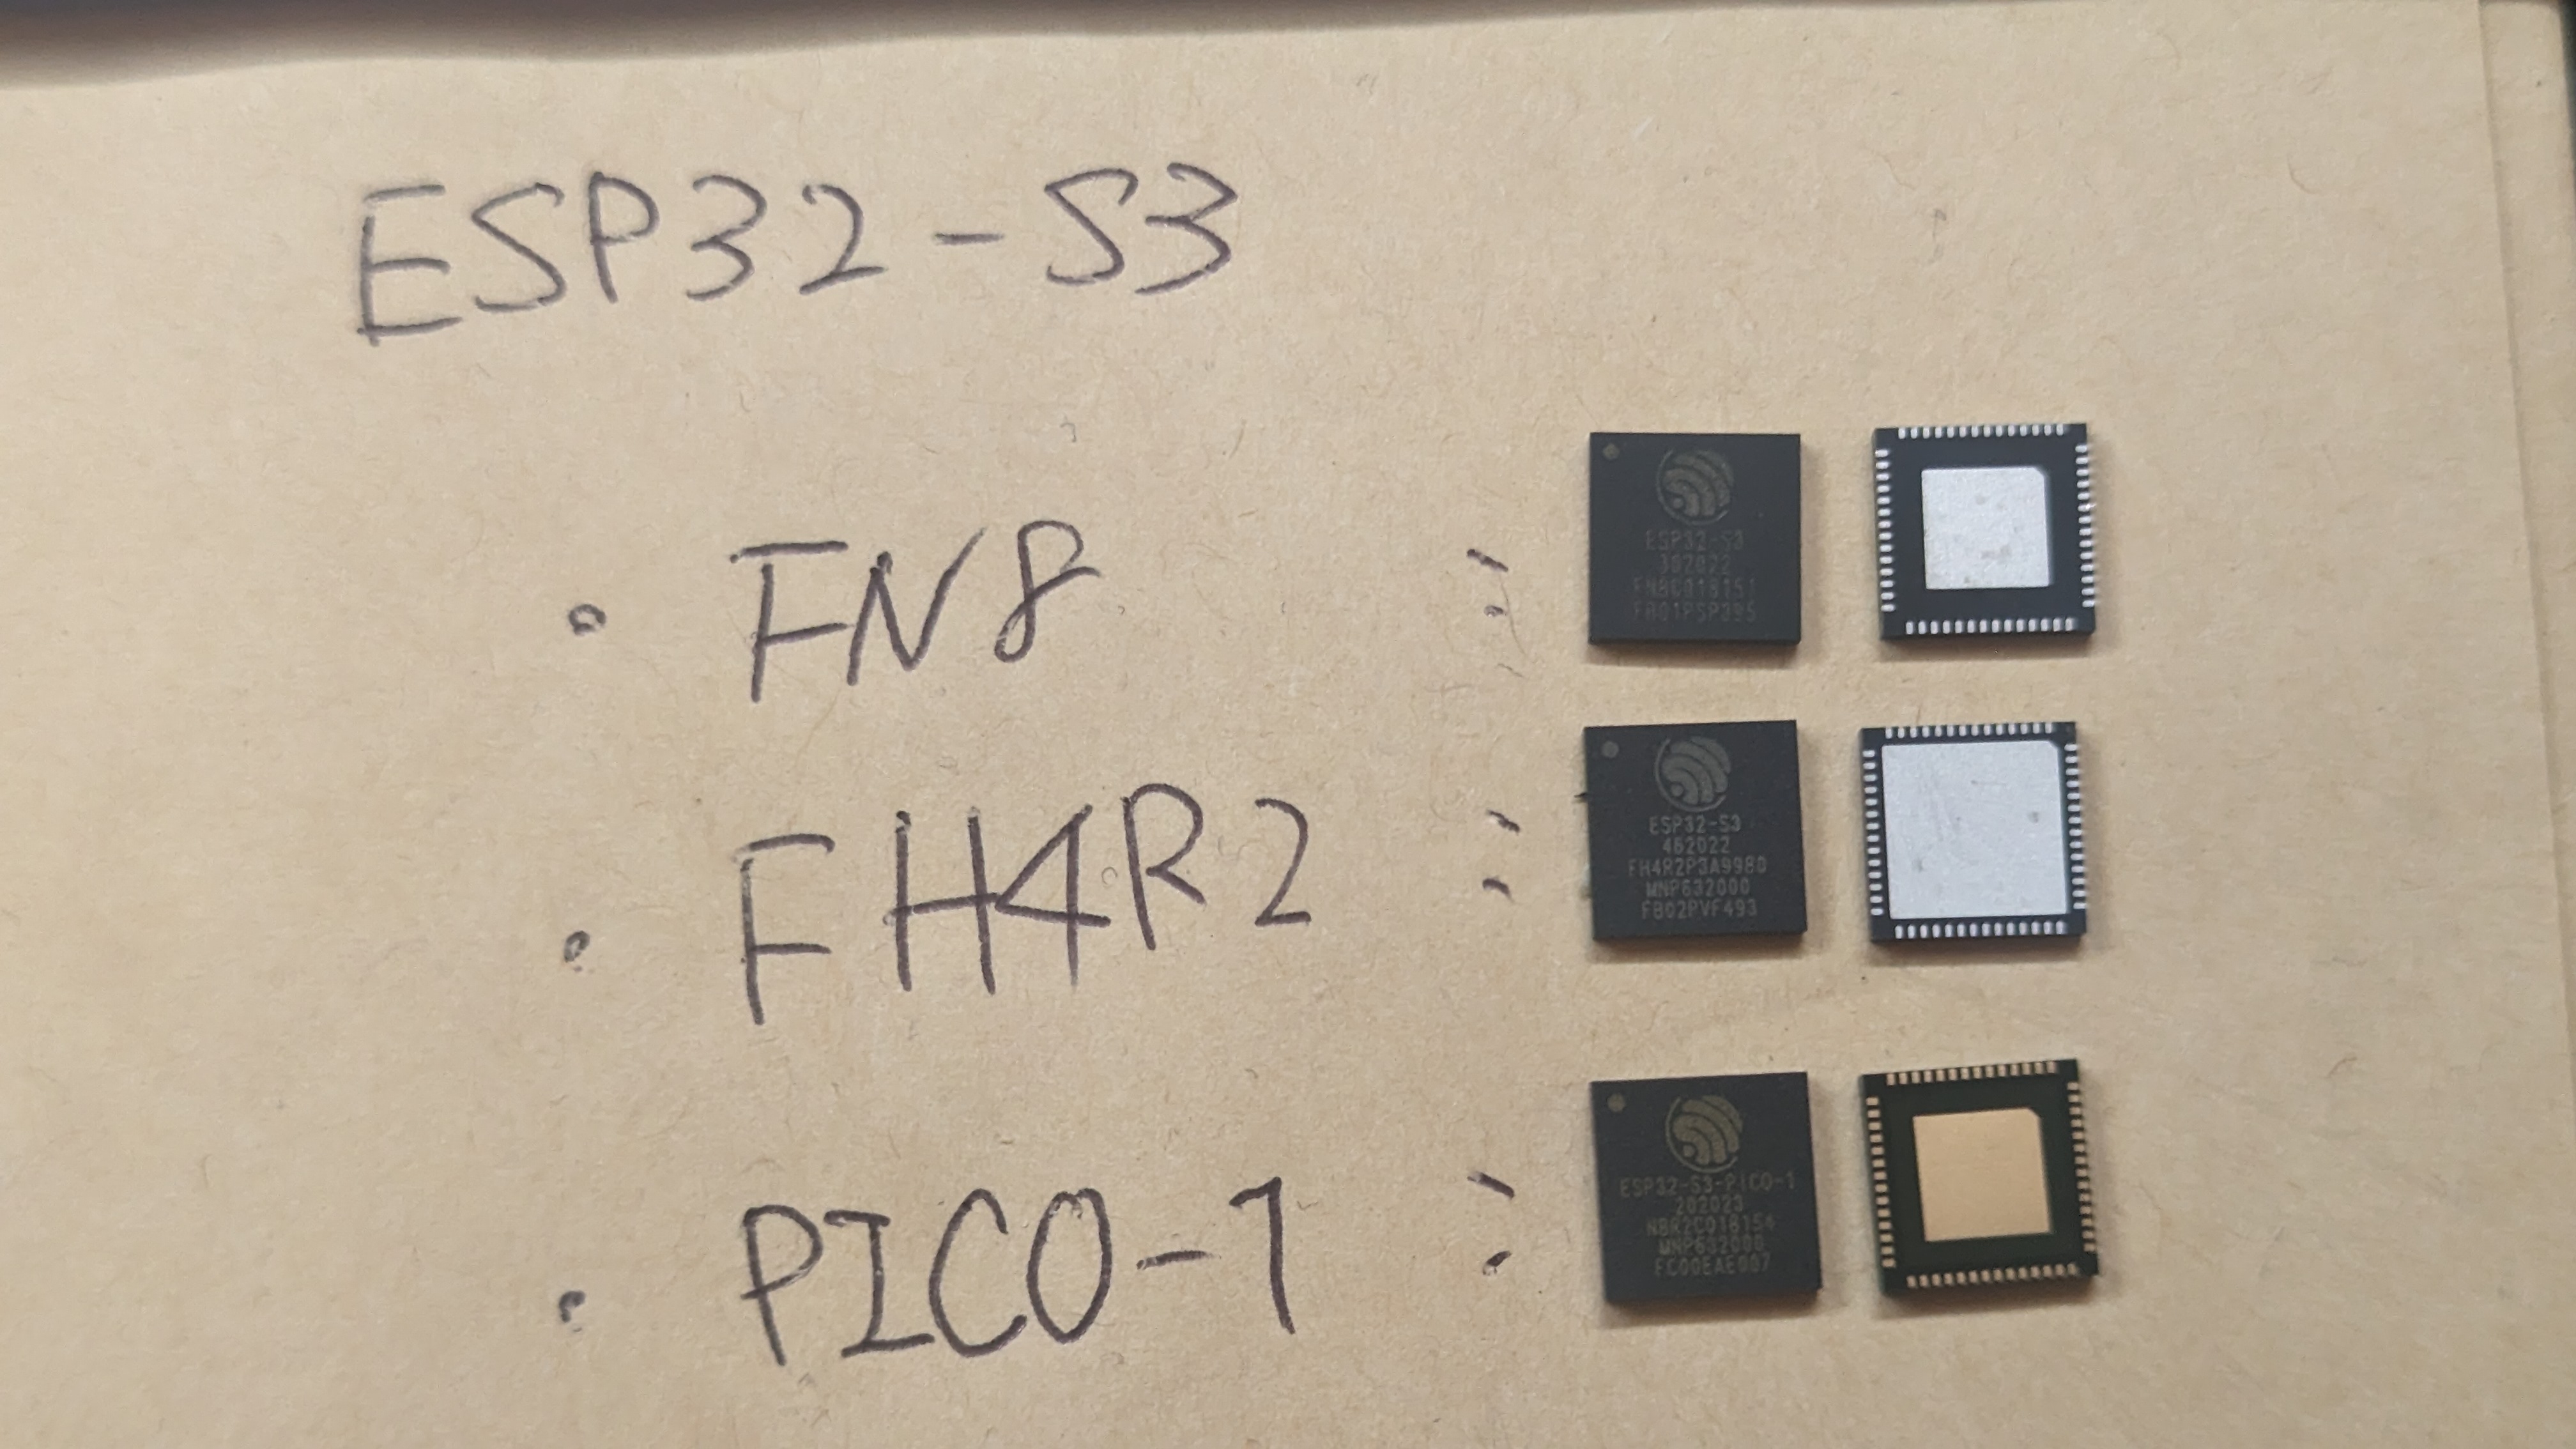 ESP32-S3
• FN8 :
ESP32-S3
382022
FN8C018151
FB01PSP395
• FH4R2 :
ESP32-S3
462022
FH4R2P3A9980
MNP632000
FB02PVF493
• PICO-1 :
ESP32-S3-PICO-1
202023
N8R2C018154
MNP632000
FC00EAE007